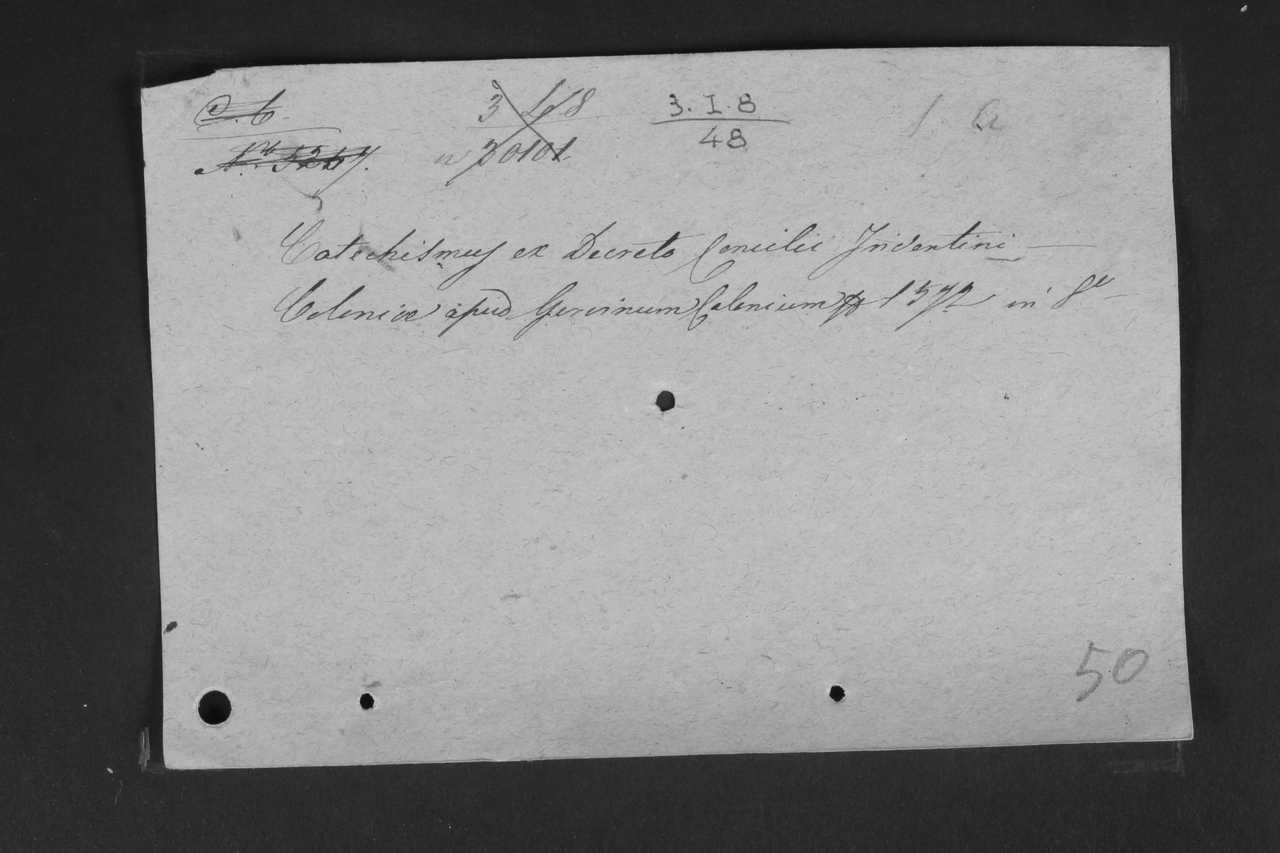 3. I. 8
48
Catechismus ex Decreto Concilii Tridentini
Coloniæ apud Gervinum Calenium 1572 in 8º
50